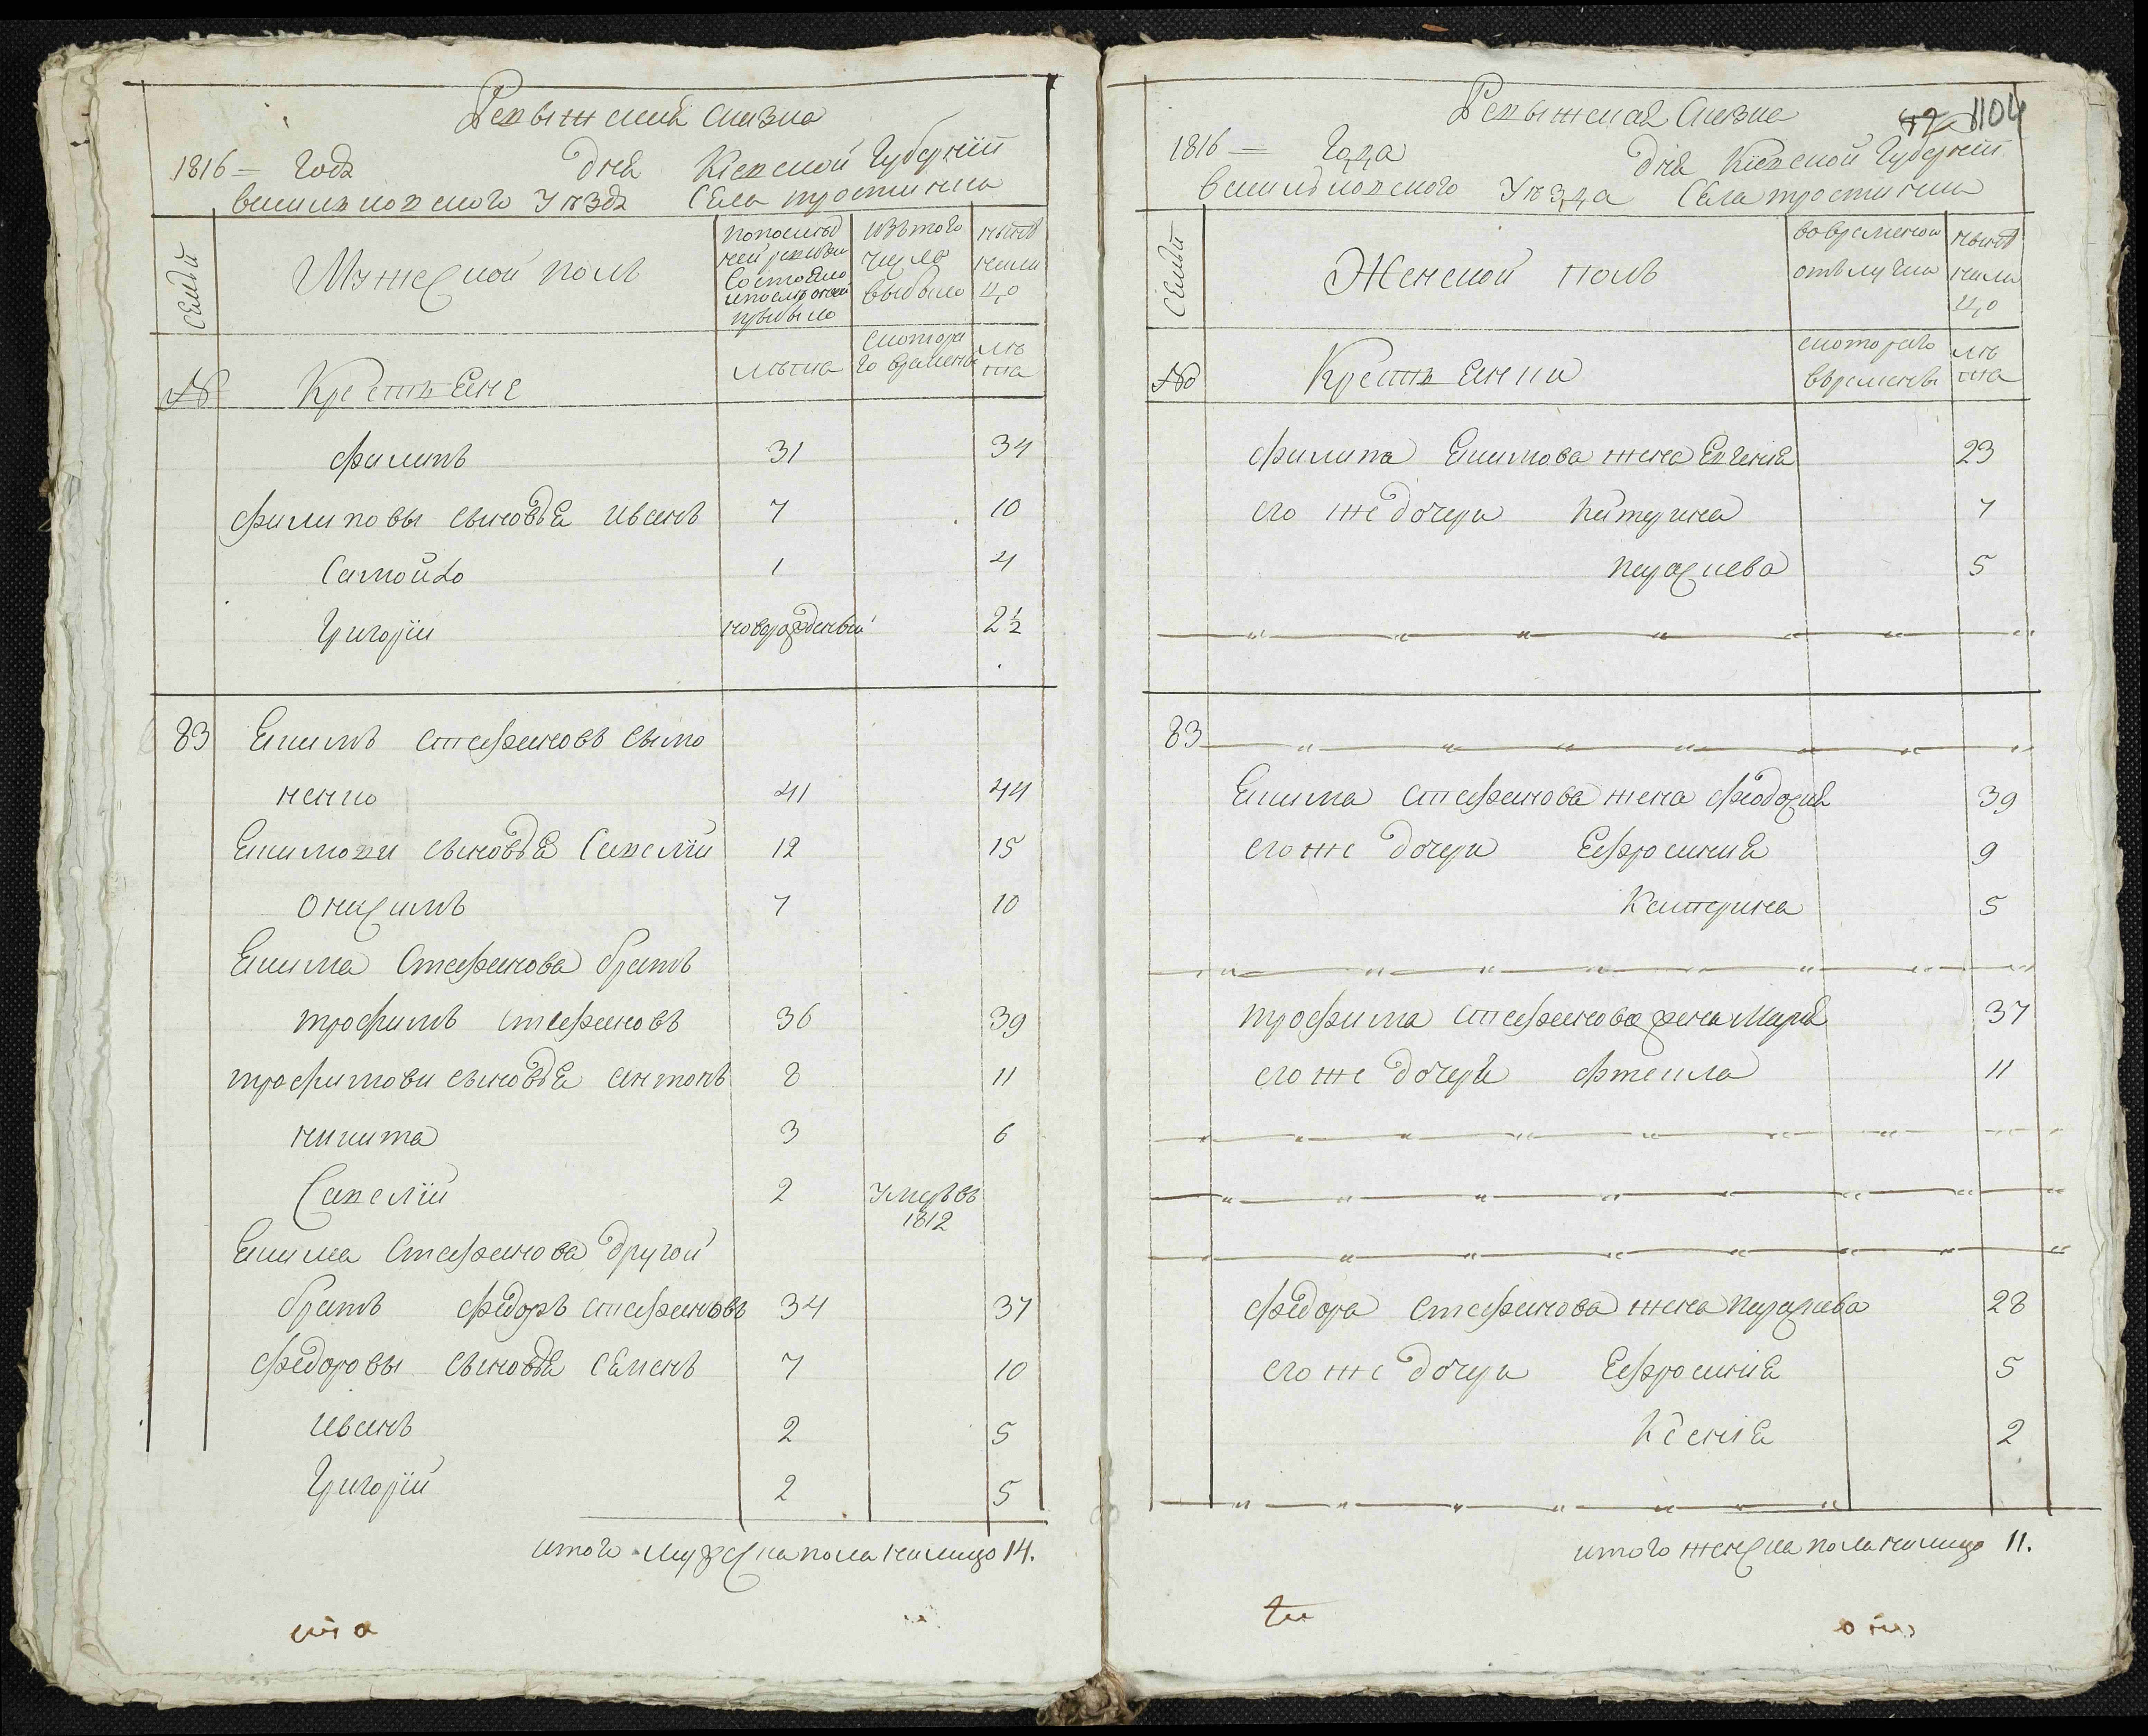 Ревыжская сказка
1816 — года дня Киевской Губернїи
васильковского Уезда Села тростинки
семьи
Мужеской полъ
попослед
ней ревизии
состояло
и после оной
прибыло
изътого
числа
выбыло
ныне
нали
цо
№
Крестьяне
лета
скотора
го времени
ле
та
филипъ 31 34
филиповы сыновья иванъ 7 10
Самойло 1 4
григорїи новорожденный 2 1/2
83 Екимъ стефановъ сымо
ненко 41 44
Екимови сыновья Савелїй 12 15
онисимъ 7 10
Екима Стефанова братъ
трофимъ стефановъ 36 39
трофимови сыновья антонъ 8 11
никита 3 6
Савелїй 2 Умеръ въ
1812
Екима Стефанова другой
братъ федоръ стефановъ 34 37
федоровы сыновья семенъ 7 10
иванъ 2 5
григорїй 2 5
итого мужеска пола налицо 14.
Ревыжская сказка
1104
1816 — года дня Киевской Губернїи
васильковского Уезда Села тростинки
семьи
Женской полъ
вовременой
отълучки
ныне
нали
цо
№
Крестьянки
скотораго
времени
ле
та
филипа Екимова жена Евгения 23
его же дочери катерина 7
параскева 5
83
Екима стефанова жена феодосия 39
его же дочери Ефросиния 9
Катерина 5
трофима стефанова жена Мария 37
его же дочеря фтекла 11
федора стефанова жена параскева 28
его же дочери Ефросинїя 5
Ксенїя 2
итого женска пола налицо 11.